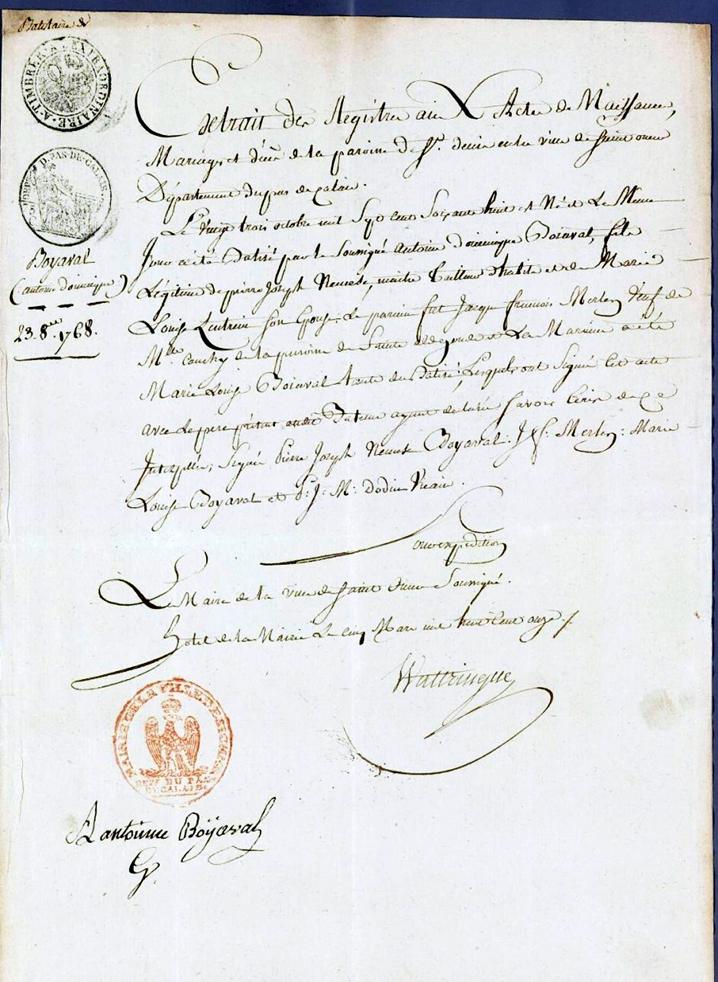 TIMBRE EXTRAORDINAIRE
D. PAS-DE-CALAIS
Boyaval
(antoine dominique)
23. 8.bre 1768.
Extrait des Registres aux Actes de Naissances,
Mariages et décès de la paroisse de St. denis en la ville de Saint omer
Département du pas de Calais.
Le Vingt trois octobre mil Sept cent Soixante huit est Né et Le Meme
Jour a été Batisé par le Soussigné Antoine Dominique Boiaval, fils
Légitime de pierre Joseph, maitre tailleur d'habits et de Marie
Louise Son Epouse. Le parain fut Jacque francois Merlen Veuf de
de la paroisse de Sainte aldegonde et La Maraine a été
Marie Louise Boiaval tante du Batisé, Lesquels ont Signé cet acte
avec Le pere présent ayant declaré Savoir écrire de ce
Interpellés, Signé Pierre Joseph Boyaval. J. f. Merlen: Marie
Louise Boyaval et P. J. M. Dodin Vicaire.
Pour expédition
Le Maire de la ville de Saint Omer Soussigné.
hotel de la Mairie Le cinq Mars mil huit cent onze
Wattringue
MAIRIE DE LA VILLE DE ST OMER
DEPT DU PAS DE CALAIS
antoinne Boÿaval